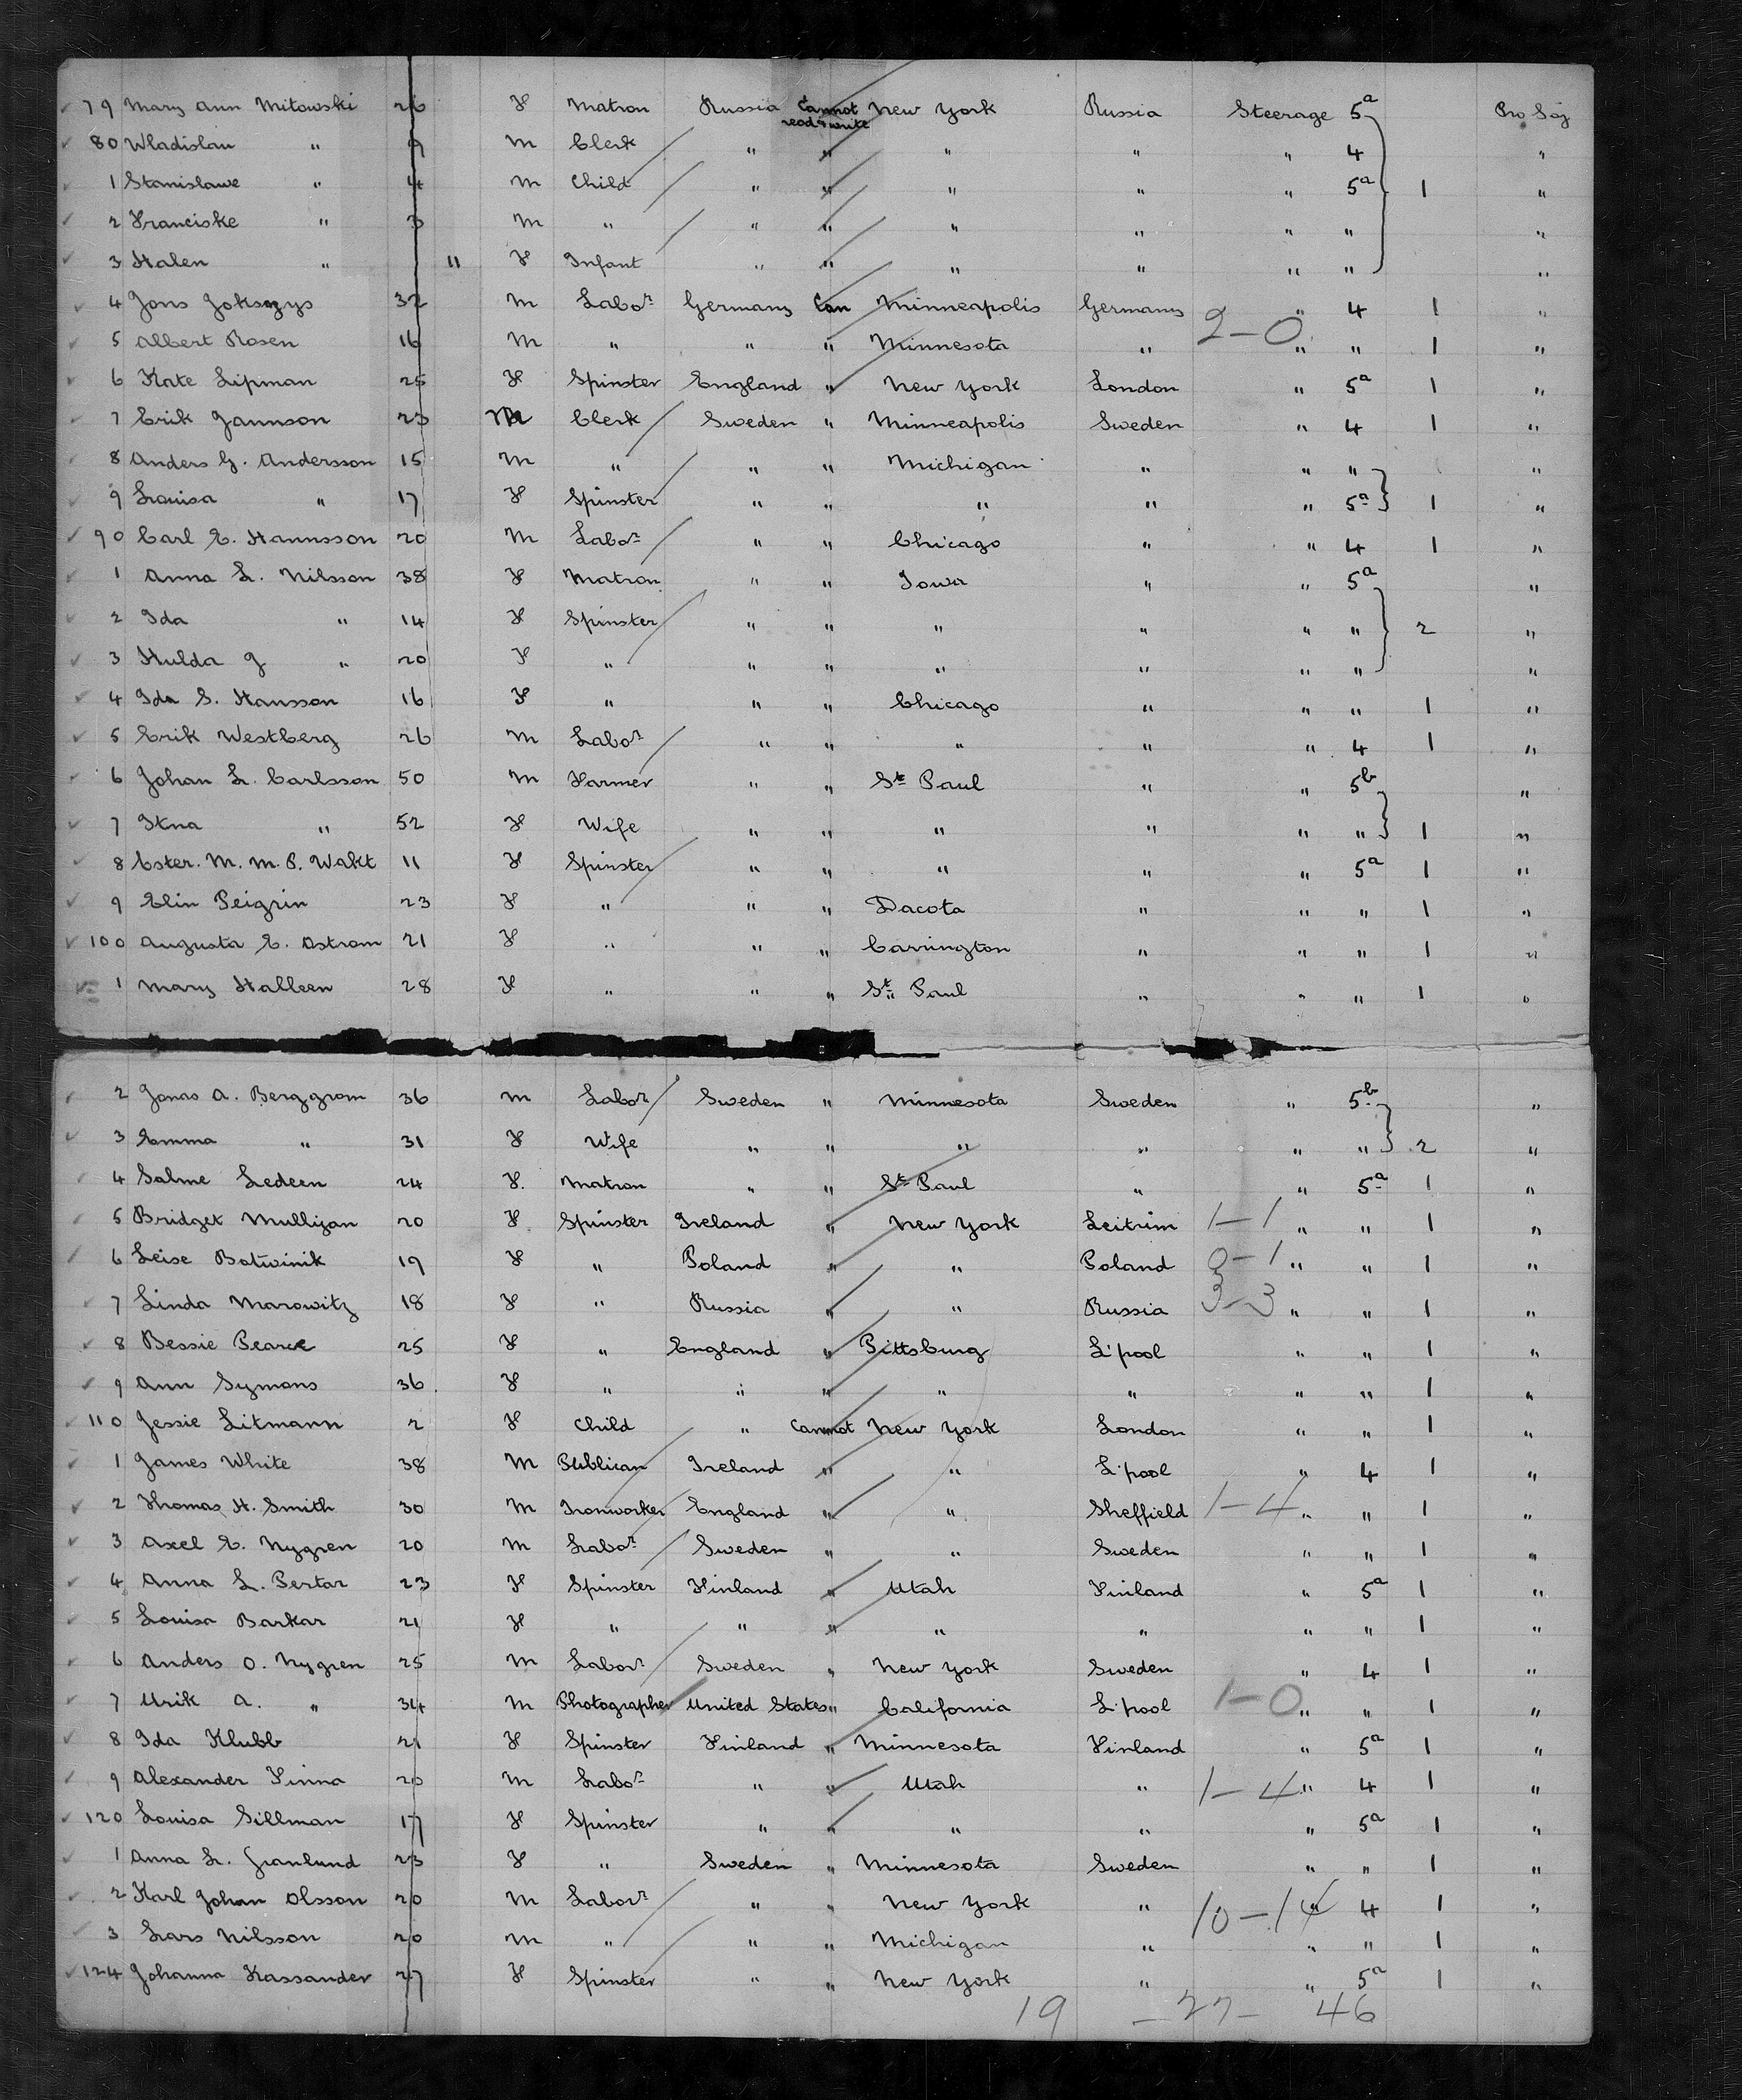 79 Mary Ann Mitowski 26 F Matron Russia Cannot read & write New York Russia Steerage 5a Pro Soj
80 Wladislau " 9 M Clerk " " " " " 4 "
1 Stanislawe " 4 M Child " " " " " 5a 1 "
2 Franciske " 3 M " " " " " " " "
3 Halen " 11 F Infant " " " " " " "
4 Jons 32 M Labor Germany Can Minneapolis Germany " 4 1 "
5 Albert Rosen 16 M " " " Minnesota " 2-0 " " 1 "
6 Kate Lipman 25 F Spinster England " New York London " 5a 1 "
7 Erik Jannson 23 M Clerk Sweden " Minneapolis Sweden " 4 1 "
8 Anders G. Andersson 15 M " " " Michigan " " " "
9 Louisa " 17 F Spinster " " " " " 5a 1 "
90 Carl E. Hannsson 20 M Labor " " Chicago " " 4 1 "
1 Anna L. Nilsson 38 F Matron " " Iowa " " 5a "
2 Ida " 14 F Spinster " " " " " " 2 "
3 Hulda J " 20 F " " " " " " " "
4 Ida S. Hansson 16 F " " " Chicago " " " 1 "
5 Erik Westberg 26 M Labor " " " " " 4 1 "
6 Johan L. Carlsson 50 M Farmer " " St Paul " " 5b "
7 Stna " 52 F Wife " " " " " " 1 "
8 Ester. M. M. P. Wakt 11 F Spinster " " " " " 5a 1 "
9 Elin Peigrin 23 F " " " Dacota " " " 1 "
100 Augusta E. Ostrom 21 F " " " Carrington " " " 1 "
1 Mary Halleen 28 F " " " St Paul " " " 1 "
2 Jonas A. Berggrom 36 M Labor Sweden " Minnesota Sweden " 5b "
3 Emma " 31 F Wife " " " " " " 2 "
4 Salme Ledeen 24 F. Matron " " St Paul " " 5a 1 "
5 Bridget Mulligan 20 F Spinster Ireland " New York Leitrim 1-1 " " 1 "
6 Leise Botwinik 19 F " Poland " " Poland 0-1 " " 1 "
7 Linda Marowitz 18 F " Russia " " Russia 3-3 " " 1 "
8 Bessie Pearce 25 F " England " Pittsburg L'pool " " 1 "
9 Ann Symons 36 F " " " " " " " 1 "
110 Jessie Litmann 2 F Child " Cannot New York London " " 1 "
1 James White 38 M Publican Ireland " " L'pool " 4 1 "
2 Thomas H. Smith 30 M Ironworker England " " Sheffield 1-4 " " 1 "
3 Axel E. Nygren 20 M Labor Sweden " " Sweden " " 1 "
4 Anna L. Pertar 23 F Spinster Finland " Utah Finland " 5a 1 "
5 Louisa Barkar 21 F " " " " " " " 1 "
6 Anders O. Nygren 25 M Labor Sweden " New York Sweden " 4 1 "
7 Urik A. " 34 M Photographer United States " California L'pool 1-0 " " 1 "
8 Ida Klubb 21 F Spinster Finland " Minnesota Finland " 5a 1 "
9 Alexander Finna 20 M Labor " " Utah " 1-4 " 4 1 "
120 Louisa Sillman 17 F Spinster " " " " " 5a 1 "
1 Anna L. Granlund 23 F " Sweden " Minnesota Sweden " " 1 "
2 Karl Johan Olsson 20 M Labor " " New York " 10-14 " 4 1 "
3 Lars Nilsson 20 M " " " Michigan " " " 1 "
124 Johanna Kassander 27 F Spinster " " New York " " 5a 1 "
19 - 27 - 46